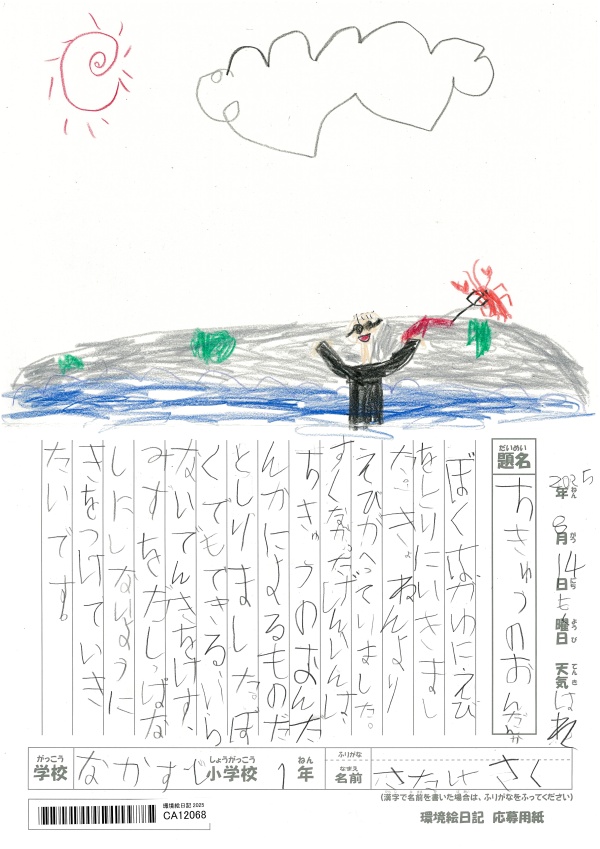 2025年ねん
8月がつ
14日にち
もく曜日ようび
天気てんき はれ
題名だいめい
ちきゅうのおんだんか
ぼくはかわにえび
をとりにいきまし
た。きょねんより
えびがへっていました。
すくなかったげんいんは、
ちきゅうのおんだ
んかによるものだ
としりました。ぼ
くでもできる、いら
ないでんきをけす、
みずをだしっぱな
しにしないように
きをつけていき
たいです。
がっこう 学校 なかすじ しょうがっこう 小学校 1 ねん 年 ふりがな なまえ 名前 さたけ さく
(漢字で名前を書いた場合は、ふりがなをふってください)
環境絵日記 2025
CA12068
環境絵日記 応募用紙